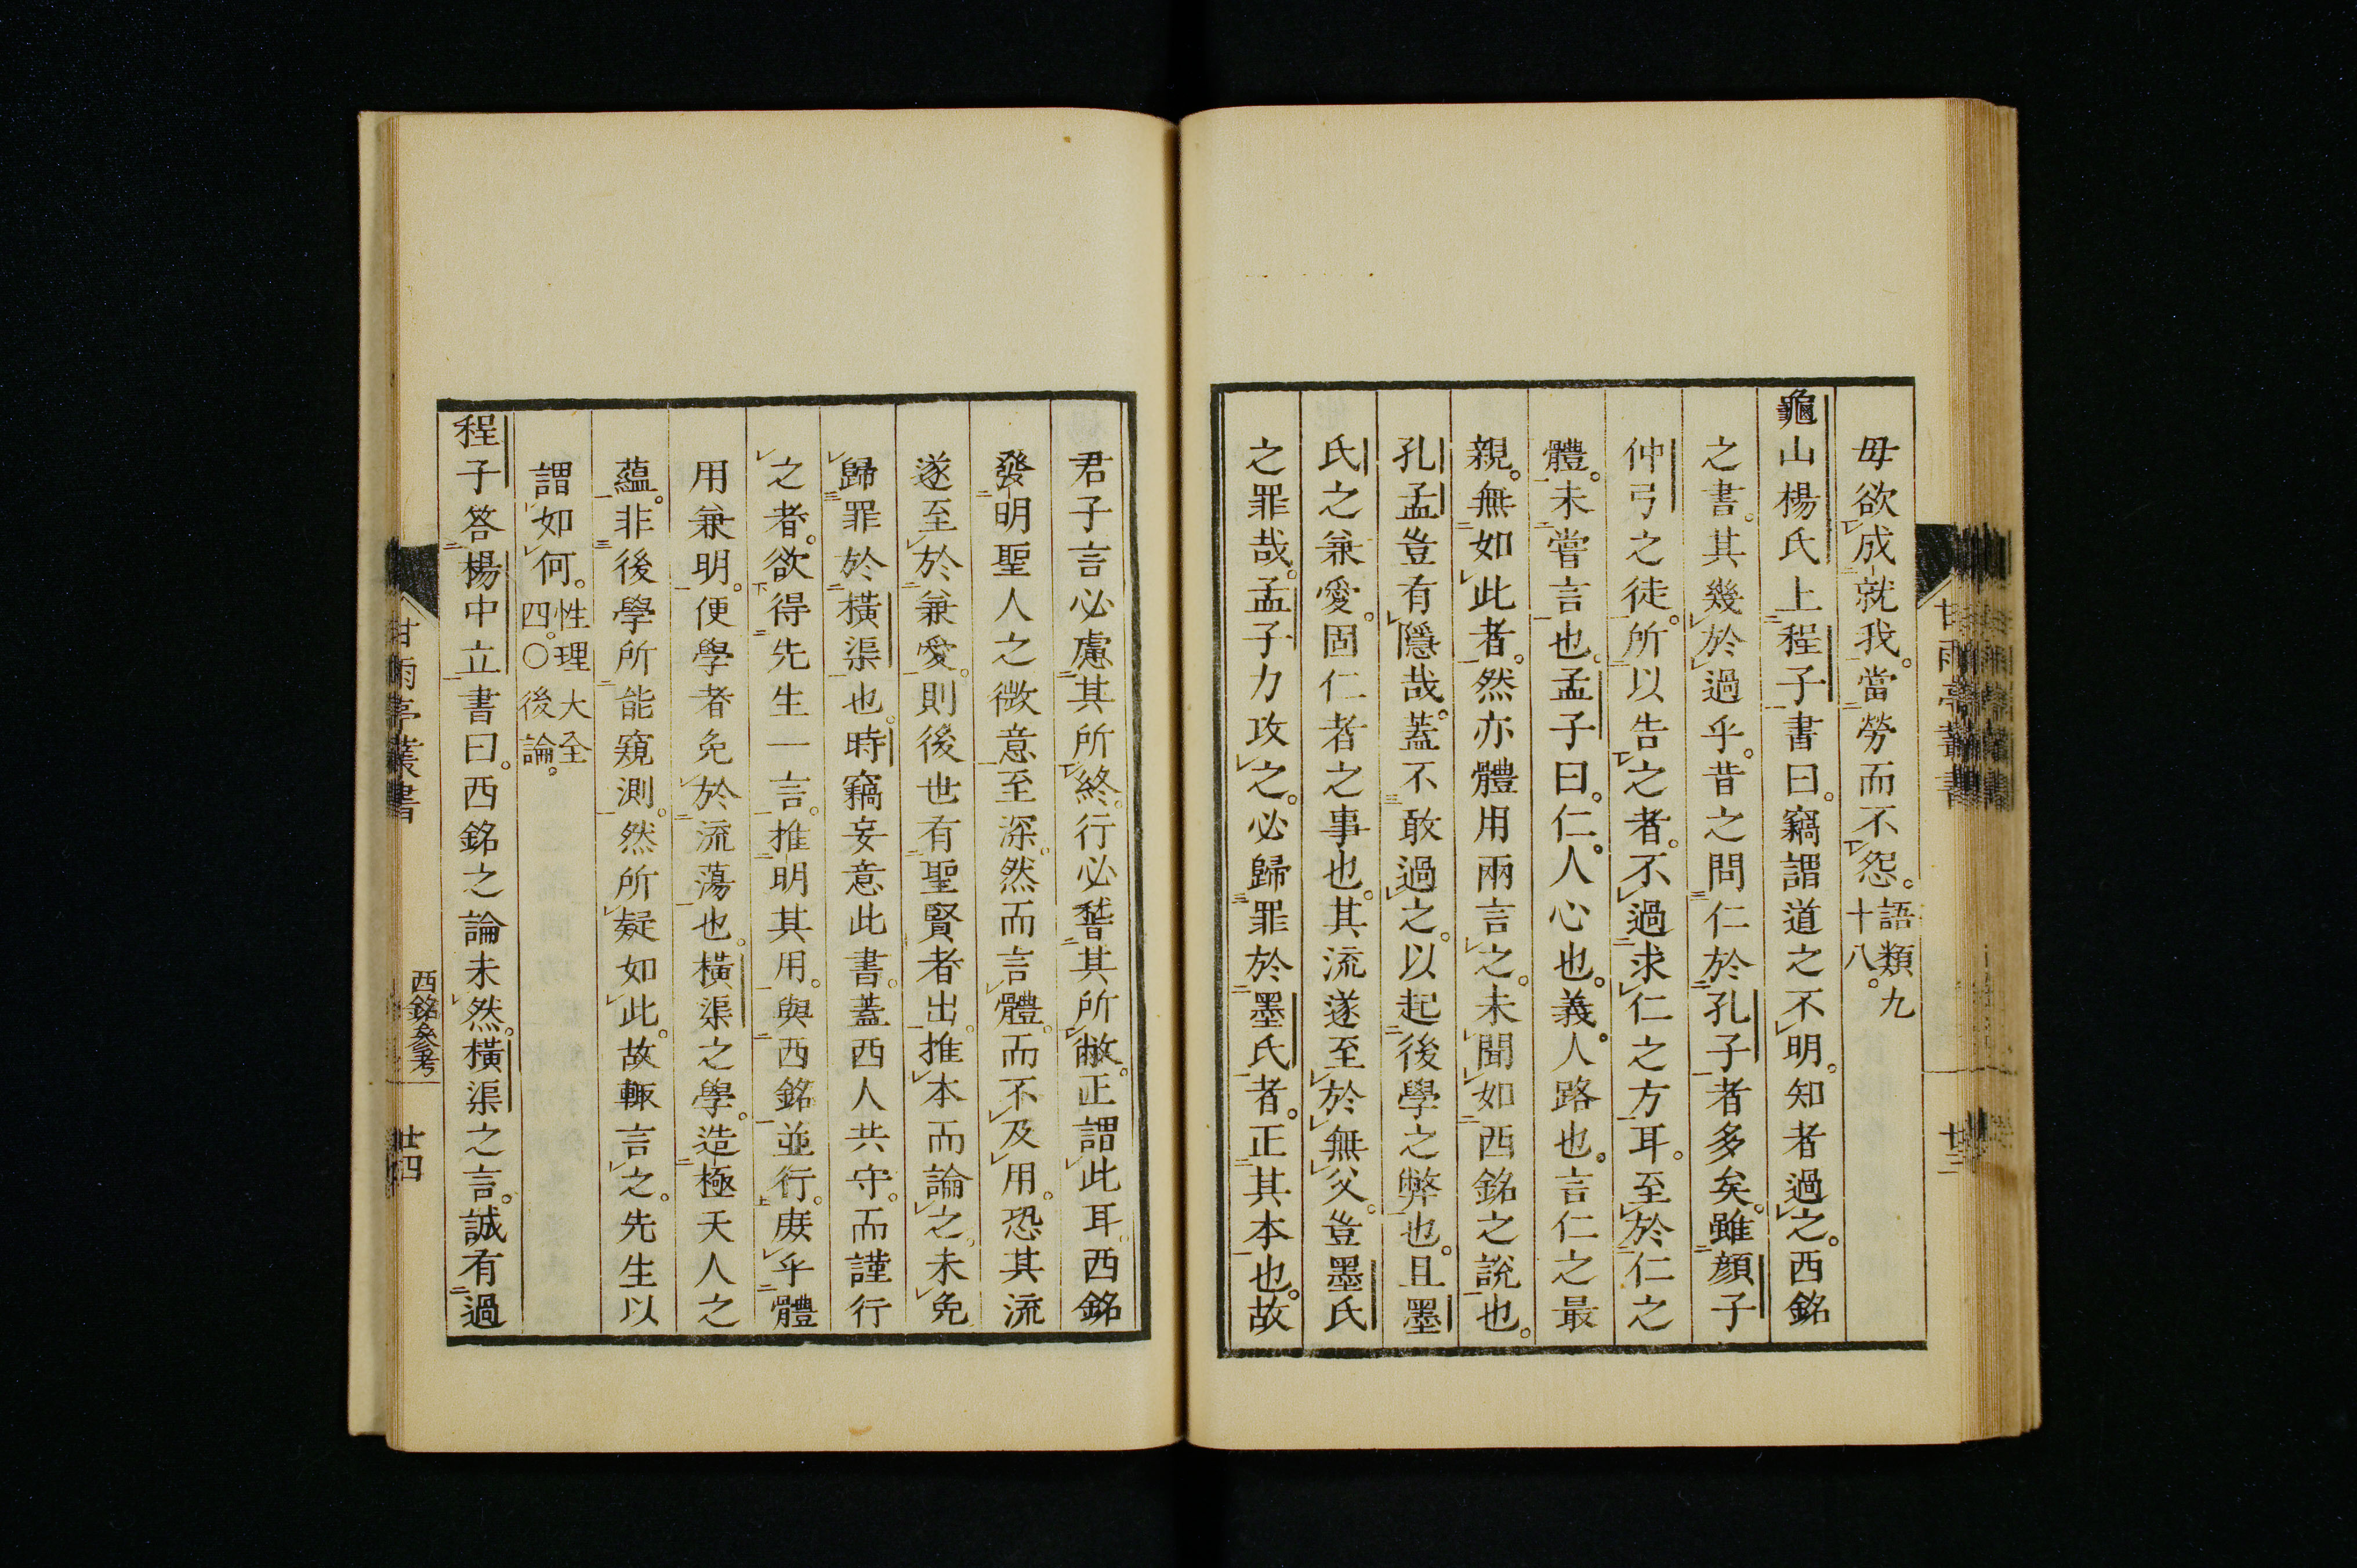 母欲成就我。當勞而不怨。語類九十八。
龜山楊氏上程子書曰。竊謂道之不明。知者過之。西銘
之書。其幾於過乎。昔之問仁於孔子者多矣。雖顔子
仲弓之徒。所以告之者。不過求仁之方耳。至於仁之
體。未嘗言也。孟子曰。仁。人心也。義。人路也。言仁之最
親。無如此者。然亦體用兩言之。未聞如西銘之說也。
孔孟豈有隱哉。蓋不敢過之。以起後學之弊也。且墨
氏之兼愛。固仁者之事也。其流遂至於無父。豈墨氏
之罪哉。孟子力攻之。必歸罪於墨氏者。正其本也。故
甘雨亭叢書
廿三
君子言必慮其所終。行必稽其所敝。正謂此耳。西銘
發明聖人之微意至深。然而言體。而不及用。恐其流
遂至於兼愛。則後世有聖賢者出。推本而論之。未免
歸罪於橫渠也。時竊妄意此書。蓋西人共守。而謹行
之者。欲得先生一言。推明其用。與西銘並行。庶乎體
用兼明。便學者免於流蕩也。橫渠之學。造極天人之
蘊。非後學所能窺測。然所疑如此。故輙言之。先生以
謂如何。性理大全四。○後論。
程子答楊中立書曰。西銘之論未然。橫渠之言。誠有過
甘雨亭叢書
西銘叅考
廿四